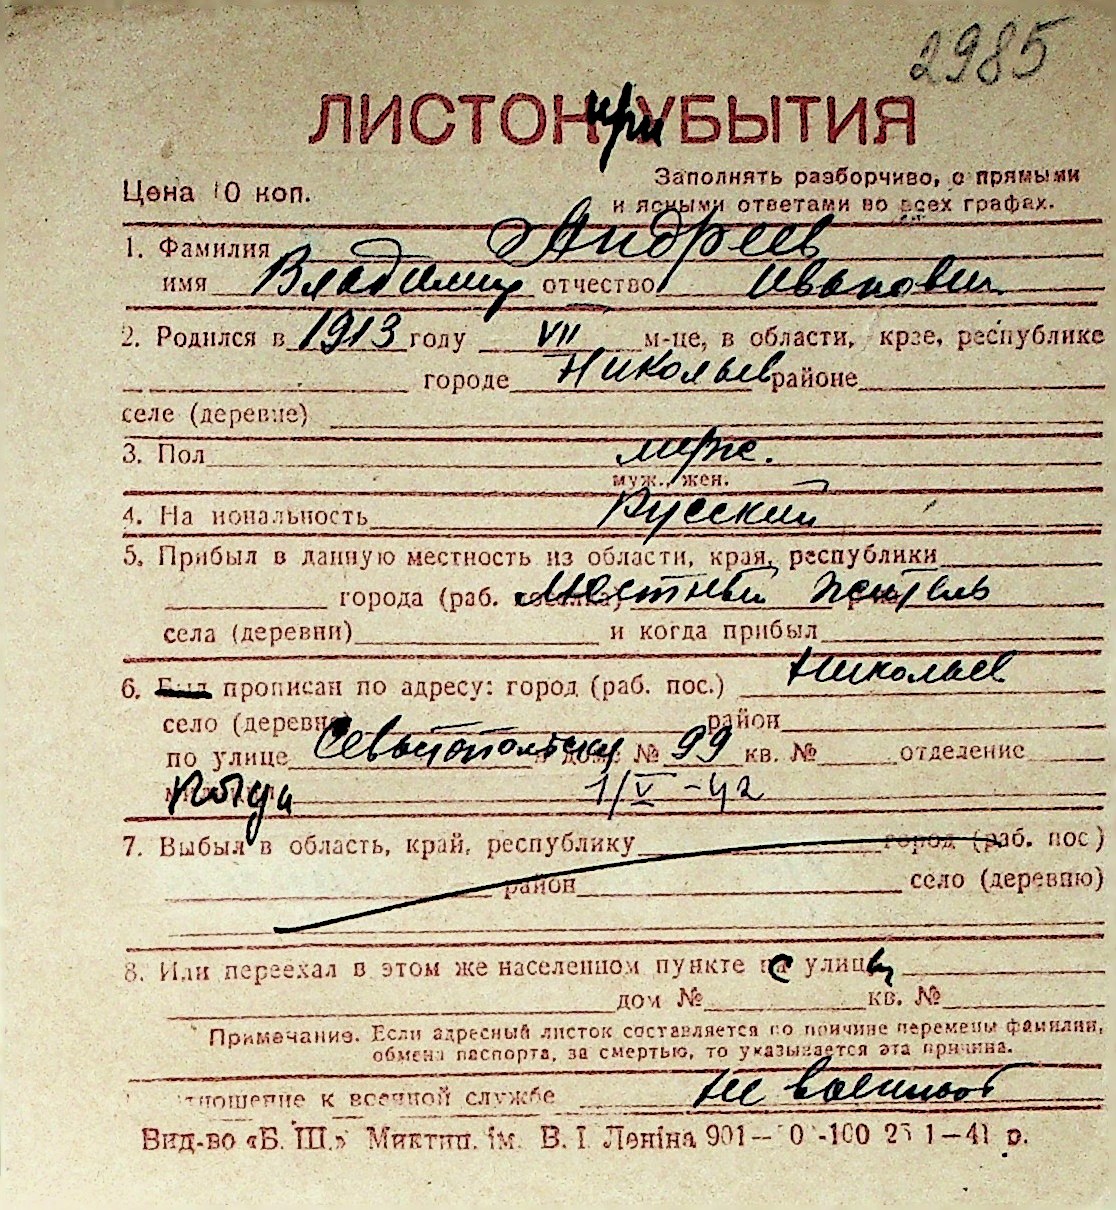 2985
ЛИСТОК при УБЫТИЯ
Цена 10 коп.
Заполнять разборчиво, с прямыми
и ясными ответами во всех графах.
1. Фамилия Андреев
имя Владимир отчество Иванович
2. Родился в 1913 году VII м-це, в области, крае, республике
городе Николаев районе
селе (деревне)
3. Пол муж.
муж., жен.
4. На иональность Русский
5. Прибыл в данную местность из области, края, республики
города (раб. Местный житель
села (деревни) и когда прибыл
6. Был прописан по адресу: город (раб. пос.) Николаев
село (деревня) район
по улице Севастопольску в доме № 99 кв. № отделение
1/V-42
7. Выбыл в область, край, республику город (раб. пос)
район село (деревню)
8. Или переехал в этом же населенном пункте с улицы
дом № кв. №
Примечание. Если адресный листок составляется по причине перемены фамилии,
обмена паспорта, за смертью, то указывается эта причина.
тношение к военной службе не военнооб
Вид-во «Б. Ш.» Миктип. ім. В. І Леніна 901— 0 -100 25 1—41 р.